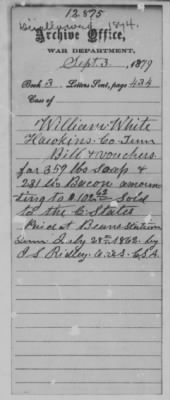 12.875
1894.
Archive Office,
WAR DEPARTMENT,
Sept. 3, 1879
Book 3. Letters Sent, page 434
Case of
William White
Hawkins. Co. Tenn
Bill & vouchers
for 359 lbs soap &
231 lbs Bacon amoun
ting to $102 62 Sold
to the C. States
Paid at Beans Station
Tenn. July 28th 1862. by
J. S. Ridley C.S.A.